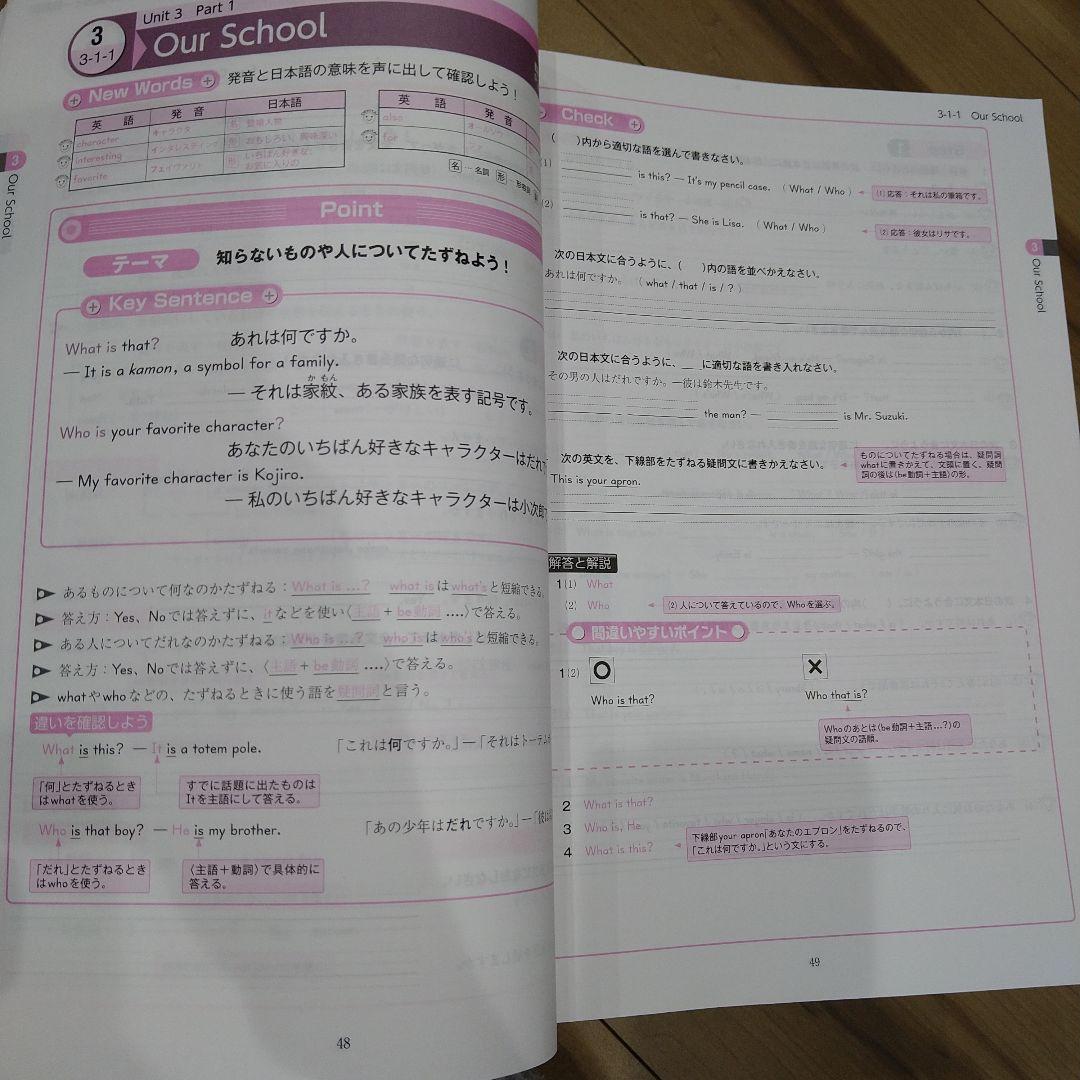 3
3-1-1
Unit 3 Part 1
Our School
New Words 発音と日本語の意味を声に出して確認しよう！
英語 発音 日本語
character キャラクタ 名 登場人物
interesting インタレスティング 形 おもしろい、興味深い
favorite フェイヴァリト 形 いちばん好きな、お気に入りの
英語 発音
also
for
名…名詞 形…形容詞
Point
テーマ 知らないものや人についてたずねよう！
Key Sentence
What is that? あれは何ですか。
— It is a kamon, a symbol for a family.
か もん
— それは家紋、ある家族を表す記号です。
Who is your favorite character?
あなたのいちばん好きなキャラクターはだれ
— My favorite character is Kojiro.
— 私のいちばん好きなキャラクターは小次郎
あるものについて何なのかたずねる：What is …? what isはwhat'sと短縮できる。
答え方：Yes、Noでは答えずに、itなどを使い〈主語 + be動詞 ….〉で答える。
ある人についてだれなのかたずねる：Who is …? who isはwho'sと短縮できる。
答え方：Yes、Noでは答えずに、〈主語 + be動詞 ….〉で答える。
whatやwhoなどの、たずねるときに使う語を疑問詞と言う。
違いを確認しよう
What is this? — It is a totem pole. 「これは何ですか。」—「それはトーテム
「何」とたずねるとき
はwhatを使う。
すでに話題に出たものは
Itを主語にして答える。
Who is that boy? — He is my brother. 「あの少年はだれですか。」—「彼は
「だれ」とたずねるとき
はwhoを使う。
〈主語＋動詞〉で具体的に
答える。
48
3
Our School
3-1-1 Our School
Check
( )内から適切な語を選んで書きなさい。
(1) is this? — It's my pencil case. ( What / Who )
(1) 応答：それは私の筆箱です。
(2) is that? — She is Lisa. ( What / Who )
(2) 応答：彼女はリサです。
次の日本文に合うように、( )内の語を並べかえなさい。
あれは何ですか。 ( what / that / is / ? )
次の日本文に合うように、__に適切な語を書き入れなさい。
その男の人はだれですか。—彼は鈴木先生です。
the man? — is Mr. Suzuki.
次の英文を、下線部をたずねる疑問文に書きかえなさい。
This is your apron.
ものについてたずねる場合は、疑問詞
whatに書きかえて、文頭に置く。疑問
詞の後は〈be動詞＋主語〉の形。
解答と解説
1 (1) What
(2) Who
(2) 人について答えているので、Whoを選ぶ。
間違いやすいポイント
1(2) ○ ×
Who is that? Who that is?
Whoのあとは〈be動詞＋主語…?〉の
疑問文の語順。
2 What is that?
3 Who is, He
4 What is this?
下線部your apron「あなたのエプロン」をたずねるので、
「これは何ですか。」という文にする。
49
3
Our School